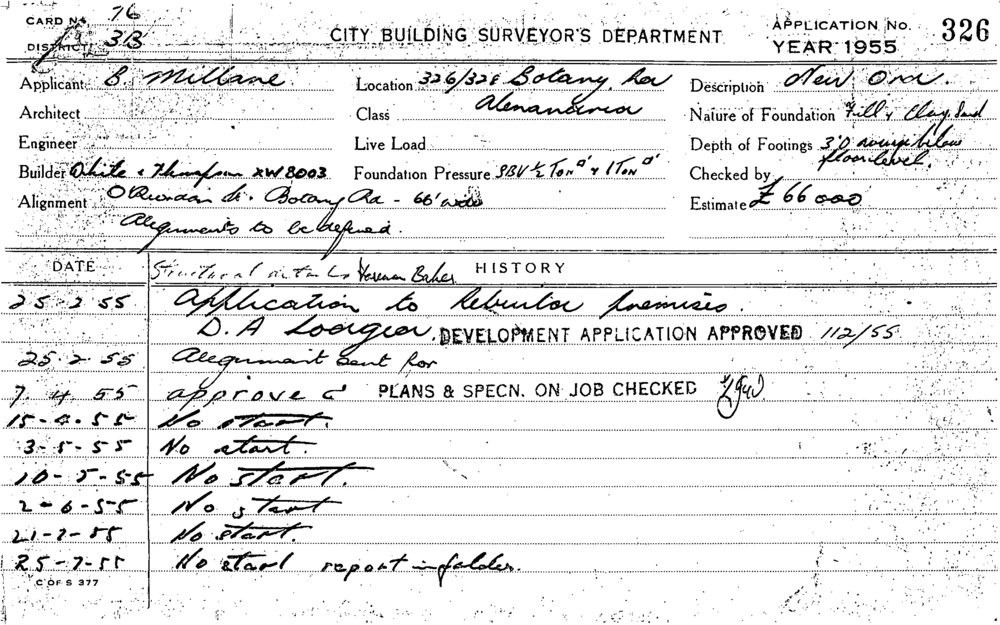 CARD No. 76
DISTRICT 3B
CITY BUILDING SURVEYOR'S DEPARTMENT
APPLICATION No. 326
YEAR 1955
Applicant B. Millane
Location 326/328 Botany Rd
Alexandria
Description New
Architect
Class
Nature of Foundation Fill & Clay, Sand
Engineer
Live Load
Depth of Footings 3'0 below
floor level.
Builder White & Thompson XW8003
Foundation Pressure SBV ½ Ton □' & 1 Ton □'
Checked by
Alignment O'Riordan St. Botany Rd - 66' wide
Alignments to be defined.
Estimate £66000
DATE
Structural details Baker
HISTORY
25.2.55 Application to premises
D.A Lodged. DEVELOPMENT APPLICATION APPROVED 112/55
25.2.55 Alignment sent for
7.4.55 approved PLANS & SPECN. ON JOB CHECKED
15-4-55 No start.
3-5-55 No start.
10-5-55 No start.
2-6-55 No start
21-7-55 No start.
25-7-55 No start report in folder.
C OF S 377